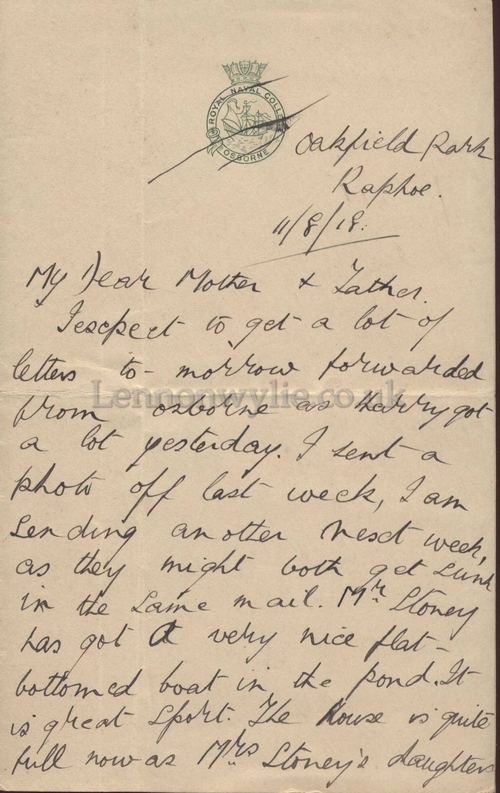 ROYAL NAVAL COLLEGE
OSBORNE
Oakfield Park
Raphoe.
11/8/18.
My Dear Mother & Father.
I escpect to get a lot of
letters to-morrow forwarded
Lennonwylie.co.uk
from osborne as Harry got
a lot yesterday. I sent a
photo off last week, I am
sending another nesct week,
as they might both get sunk
in the same mail. Mr Stoney
has got a very nice flat-
bottomed boat in the pond. It
is great sport. The house is quite
full now as Mrs Stoney's daughter